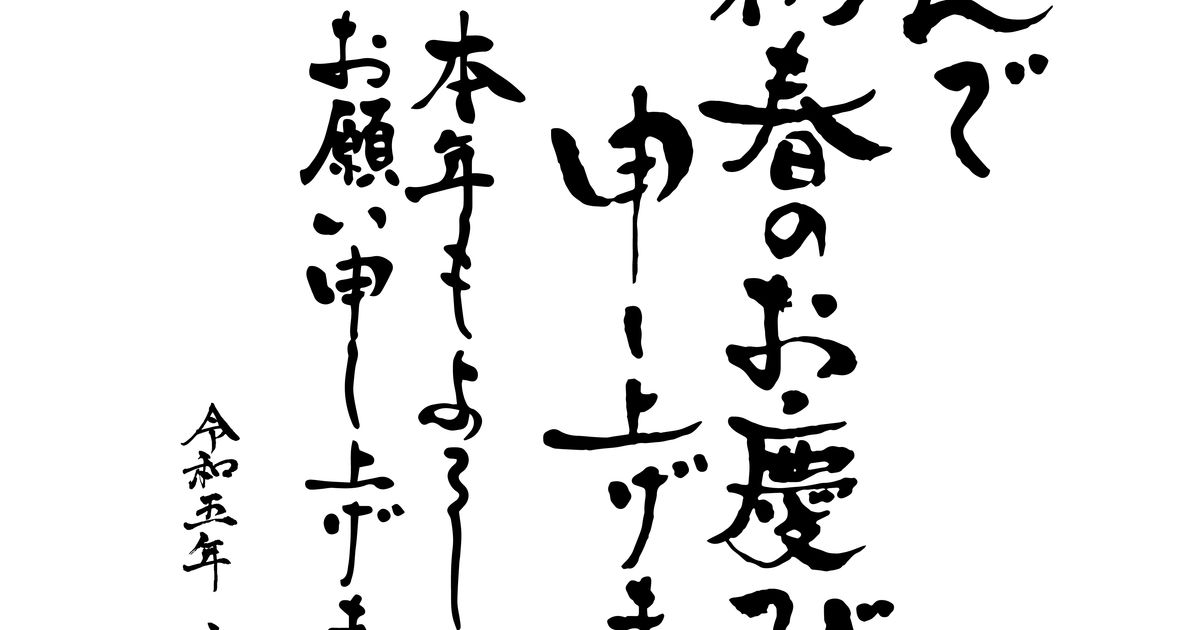 んで
春のお慶び
申し上げま
本年もよろし
お願い申し上げま
令和五年